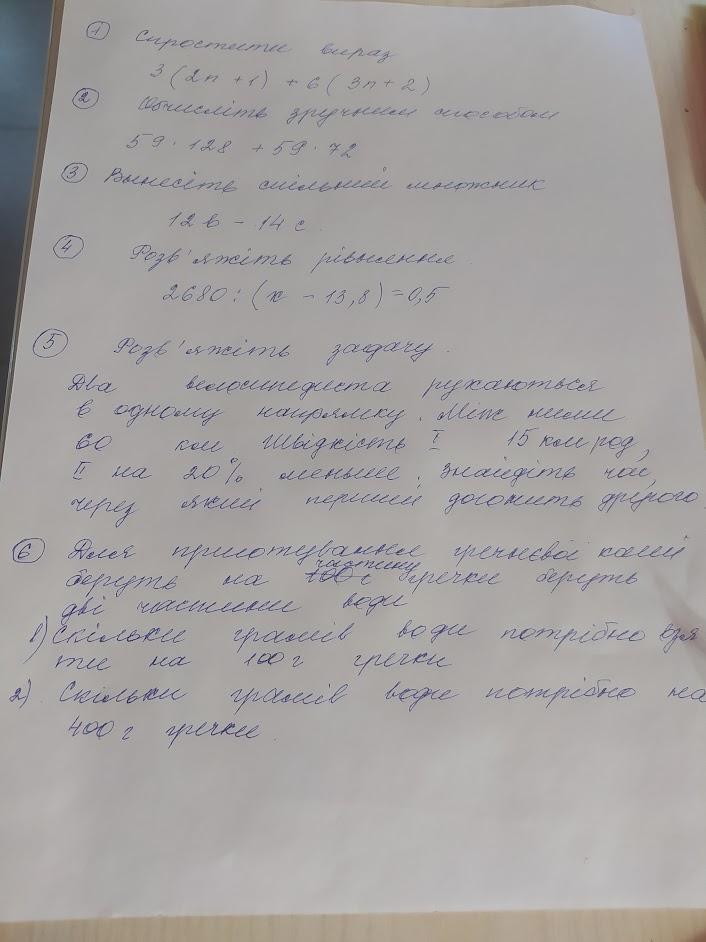 ① Спростити вираз
3(2n + 1) + 6(3n + 2)
② Обчисліть зручним способом
59 · 128 + 59 · 72
③ Вынесіть спільний множник
12в - 14с
④ Розв'яжіть рівняння
2680 : (х - 13,8) = 0,5
⑤ Розв'яжіть задачу.
Два велосипедиста рухаються
в одному напрямку. Між ними
60 км Швідкість I 15 км год,
II на 20% меньше. Знайдіть час,
через який перший догонить другого.
⑥ Для приготування гречневої каши
беруть на частину гречки беруть
дві частини води
1) Скільки грамів води потрібно взя
ти на 100 г гречки
2) Скільки грамів води потрібно на
400 г гречки